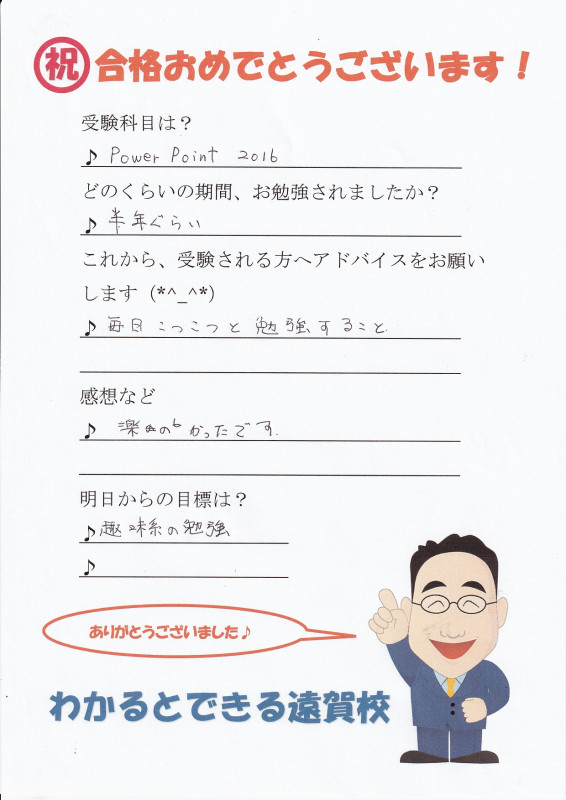 祝 合格おめでとうございます!
受験科目は?
♪ Power Point 2016
どのくらいの期間、お勉強されましたか?
♪ 半年ぐらい
これから、受験される方へアドバイスをお願い
します (*^_^*)
♪ 毎日こつこつと勉強すること
感想など
♪ かったです.
明日からの目標は?
♪ 趣味系の勉強
♪
ありがとうございました♪
わかるとできる遠賀校